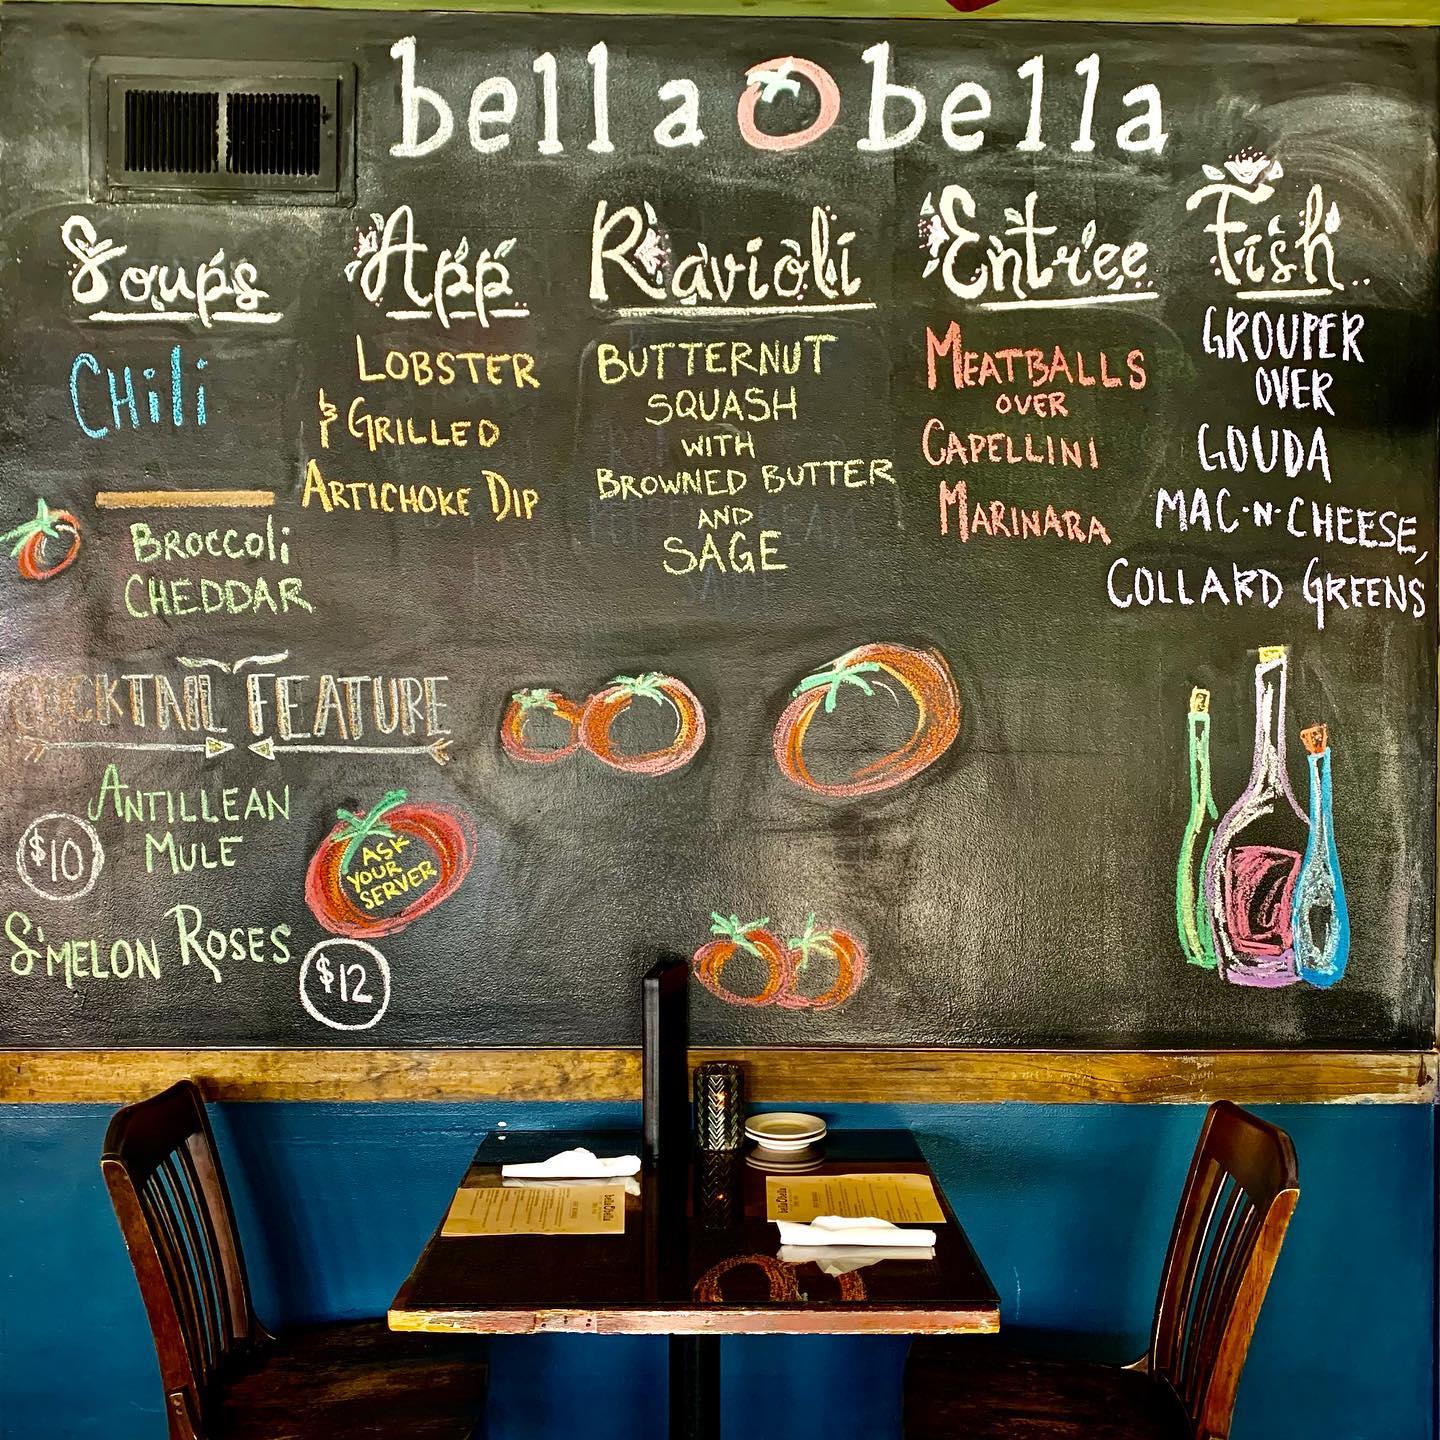 bella bella
Soups
Chili
Broccoli
Cheddar
App
Lobster
& Grilled
Artichoke Dip
Ravioli
Butternut
Squash
with
Browned Butter
and
Sage
Entree
Meatballs
over
Capellini
Marinara
Fish
Grouper
over
Gouda
Mac-n-Cheese,
Collard Greens
Cocktail Feature
Antillean
Mule
$10
Ask
Your
Server
S'melon Roses
$12
bella bella
bella bella